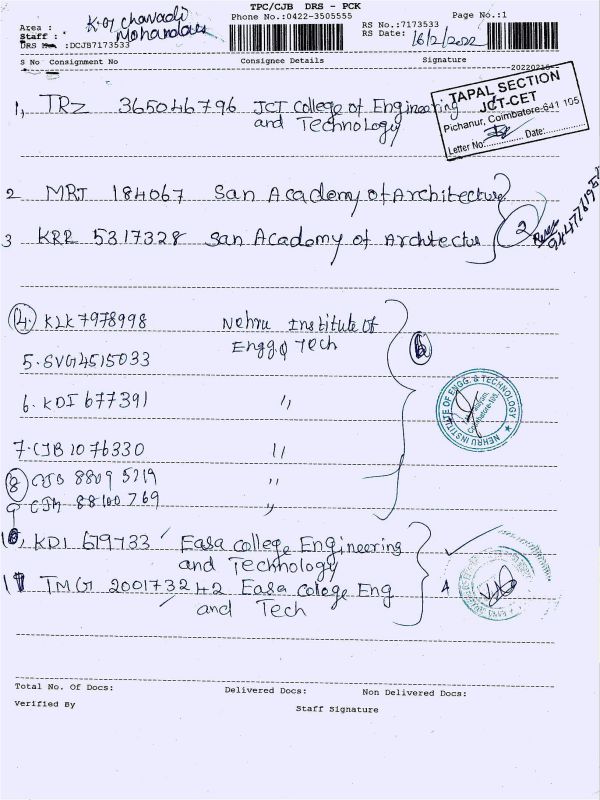 TPC/CJB DRS - PCK
Phone No.:0422-3505555
Page No.:1
Area :
K.G chavadi
Staff :
Mohandas
DRS No. :DCJB7173533
RS No.:7173533
RS Date: 16/2/2022
S No Consignment No Consignee Details Signature
20220216
TAPAL SECTION
JCT-CET
Pichanur, Coimbatore-641 105
Letter No: Date:
1, TRZ 365046796 JCT College of Engineering
and Technology
2 MRJ 184067 San Academy of Architecture
3 KRR 5317328 San Academy of Architectur
2
4. KLK 7978998 Nehru Institute of
Engg Q Tech
5. SVG4515033
6. KDI 677391 "
7. CJB 1076330 "
8 CJB 8809 5219 "
9 CJB 88100769 "
6
NEHRU INSTITUTE OF ENGG. & TECHNOLOGY
Coimbatore-105
10, KDI 679733 Easa College Engineering
and Technology
11 TMG 200173242 Easa College Eng
and Tech
4
Total No. Of Docs: Delivered Docs: Non Delivered Docs:
Verified By
Staff Signature